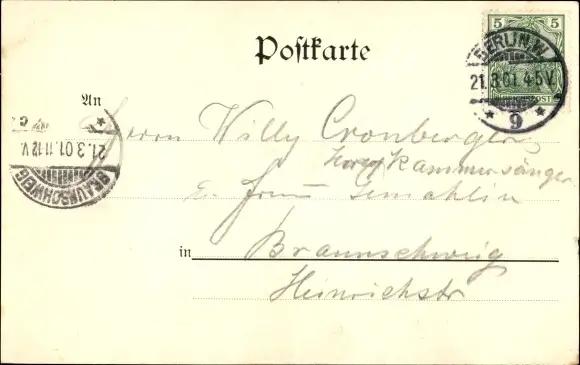 Postkarte
5 5
BERLIN.W.
21.3.01.4-5V.
* 9 *
POST
An
Herrn Willy Cronberger
Kammersänger
u. Frau Gemahlin
in Braunschweig
Heinrichstr
21.3.01.11-12V.
BRAUNSCHWEIG